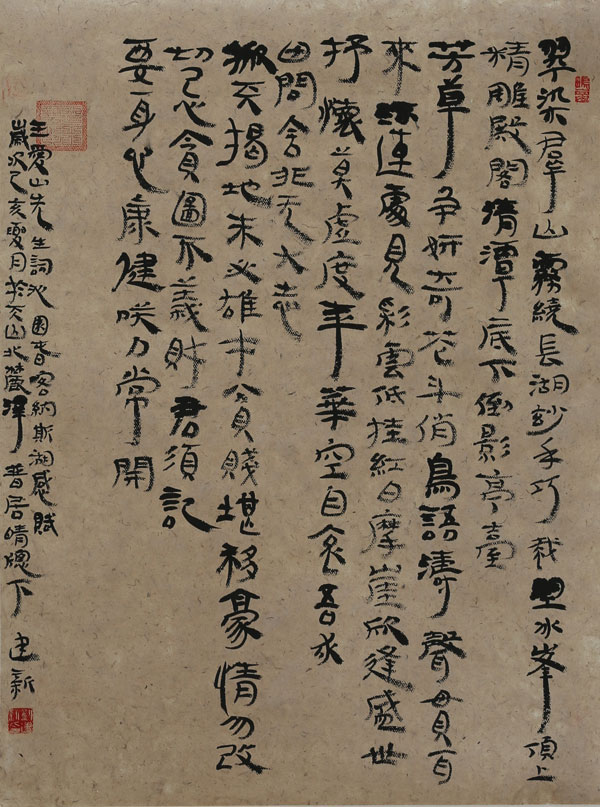 翠染群山霧繞長湖妙手巧裁望冰峯頂上
精雕殿閣清潭底下倒影亭臺
芳草爭妍奇花斗俏鳥語濤聲貫耳
來遠處見彩雲低挂紅日摩崖欣逢盛世
抒懷莫虛度年華空自哀吾求
田問舍非无大志
掀天揭地未必雄才貧賤堪移豪情勿改
切忌貪圖不義財君須記
要身心康健咲口常開
王愛山先生詞沁園春喀納斯湖感賦
歲次己亥夏月於天山北麓澤普居晴窗下建新